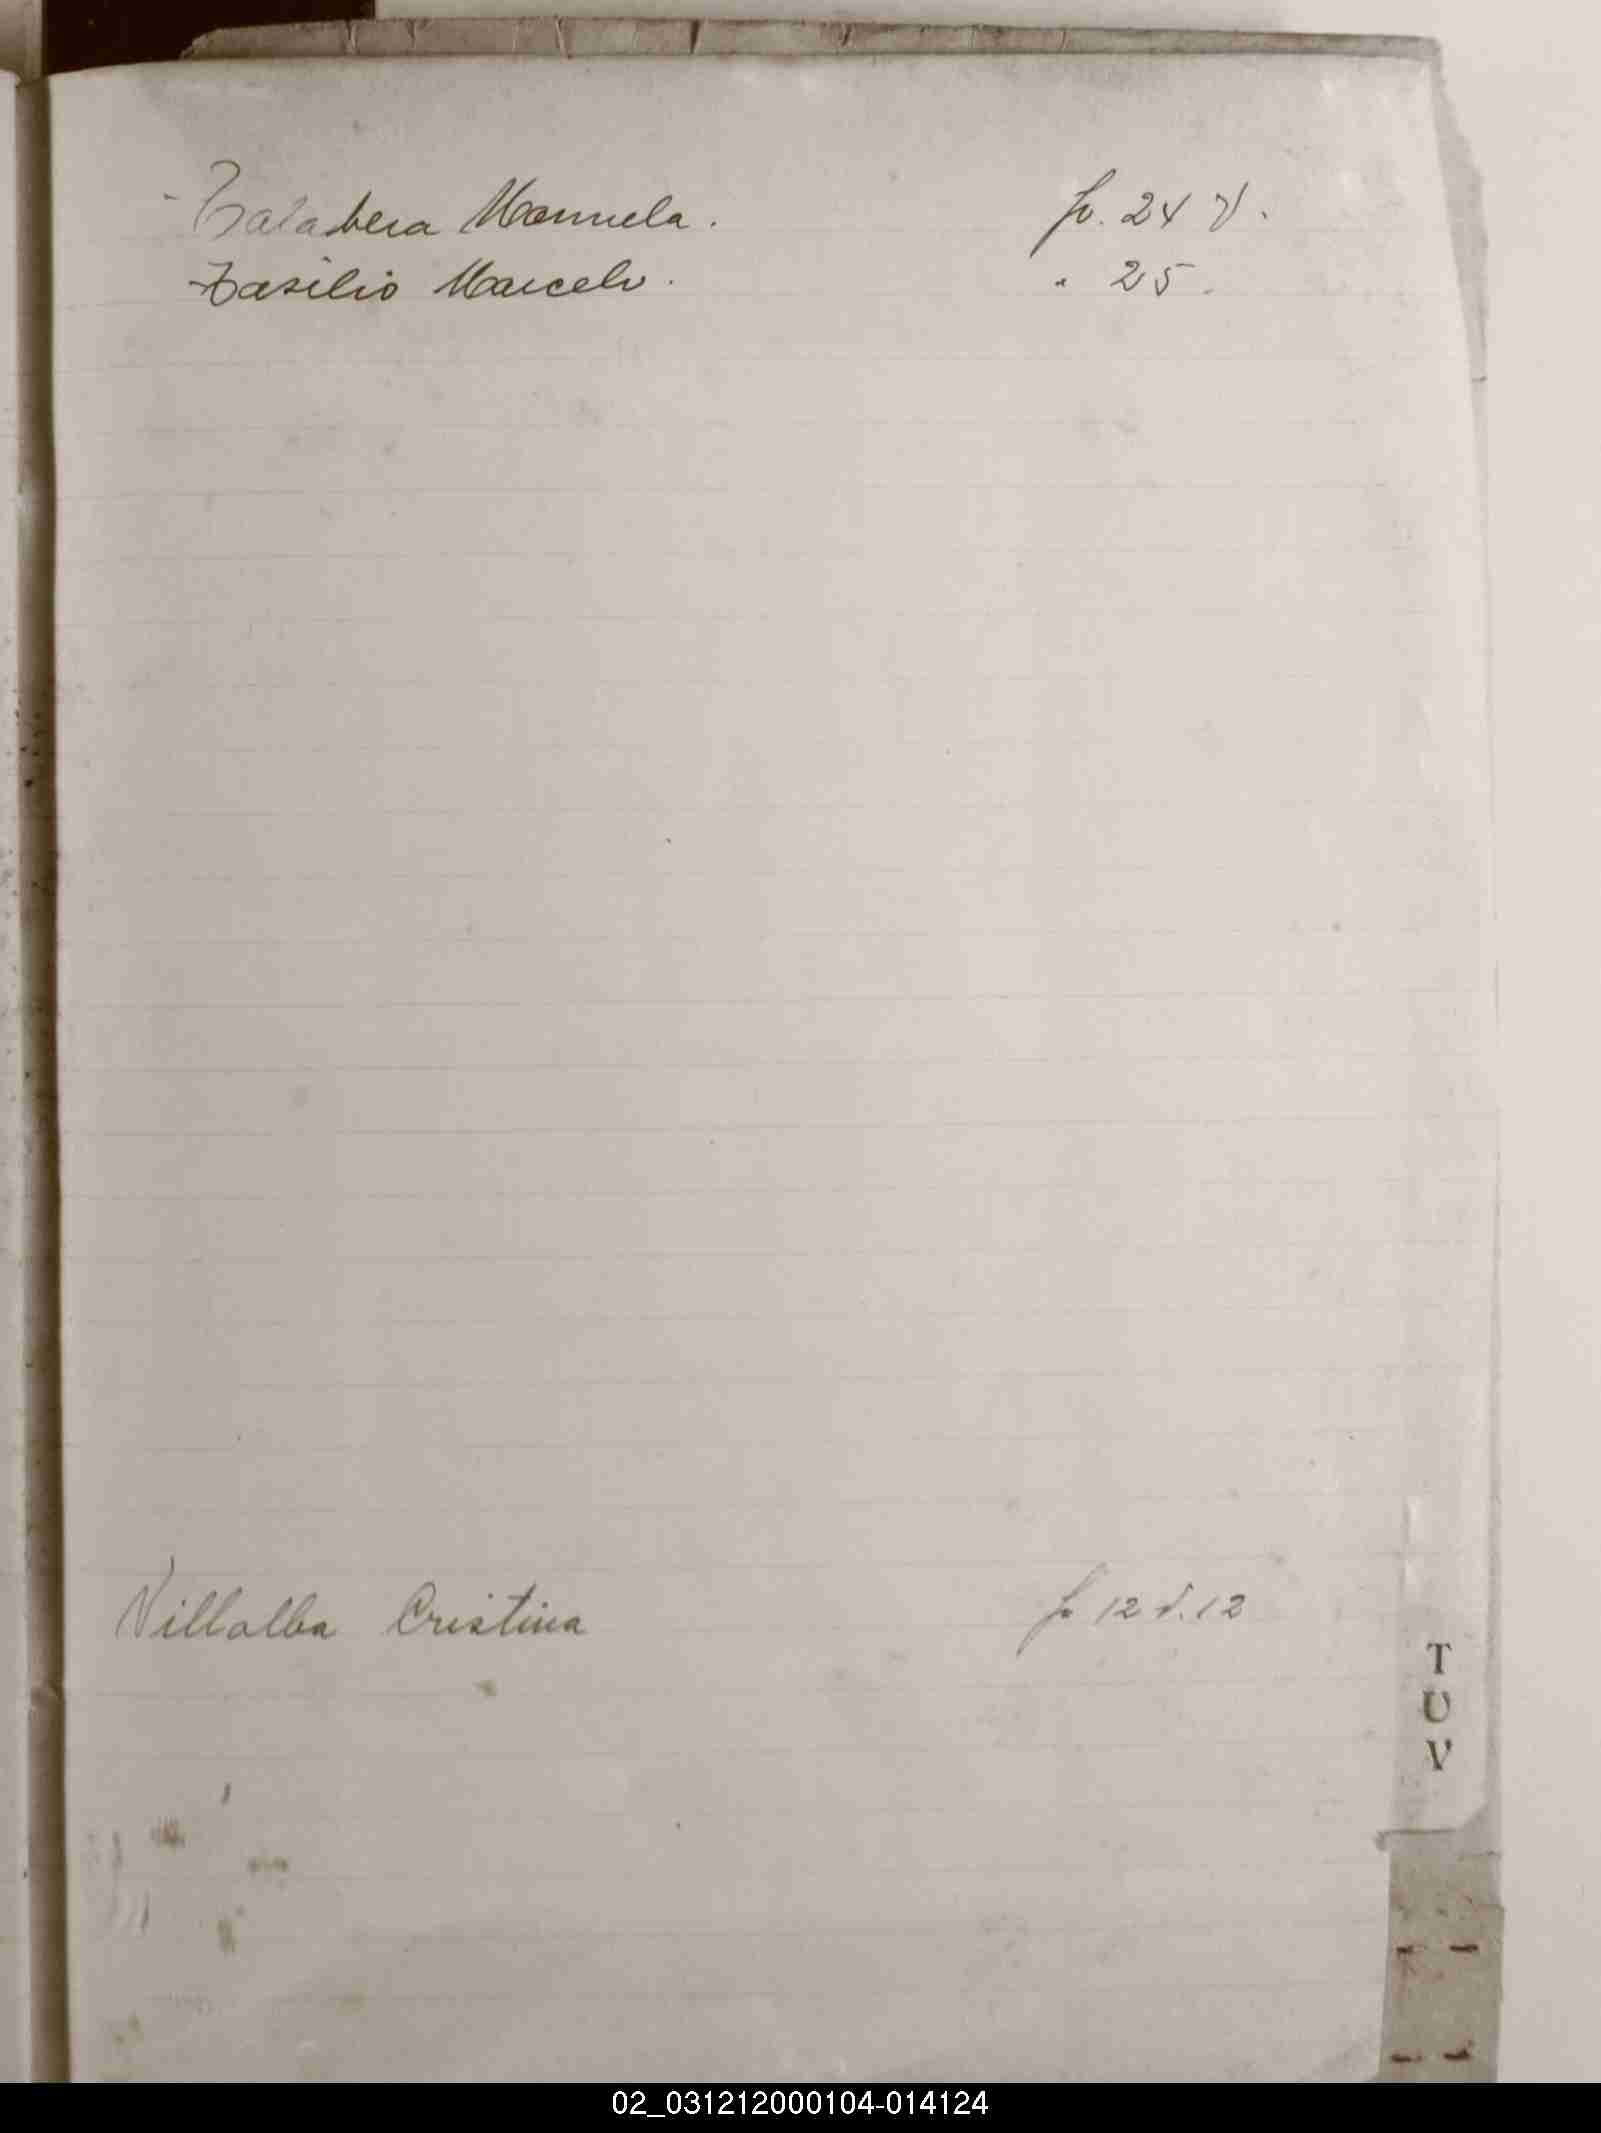 Talabera Manuela. fo. 24 v.
Tasilio Marcelo. " 25.
Villalba Cristina fo 12 v. 12
T
U
V
02_031212000104-014124